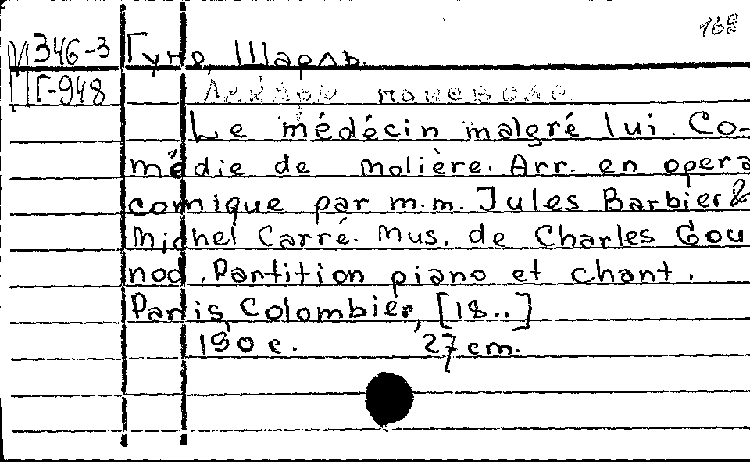 168
М346-3 Гуно, Шарль.
Г-948 Лекарь поневоле
Le médécin malgré lui. Co-
médie de Molière. Arr. en opera
comique par m.m. Jules Barbier &
Michel Carré. Mus. de Charles Gou
nod. Partition piano et chant.
Paris, Colombier, [18..]
190 c. 27 cm.